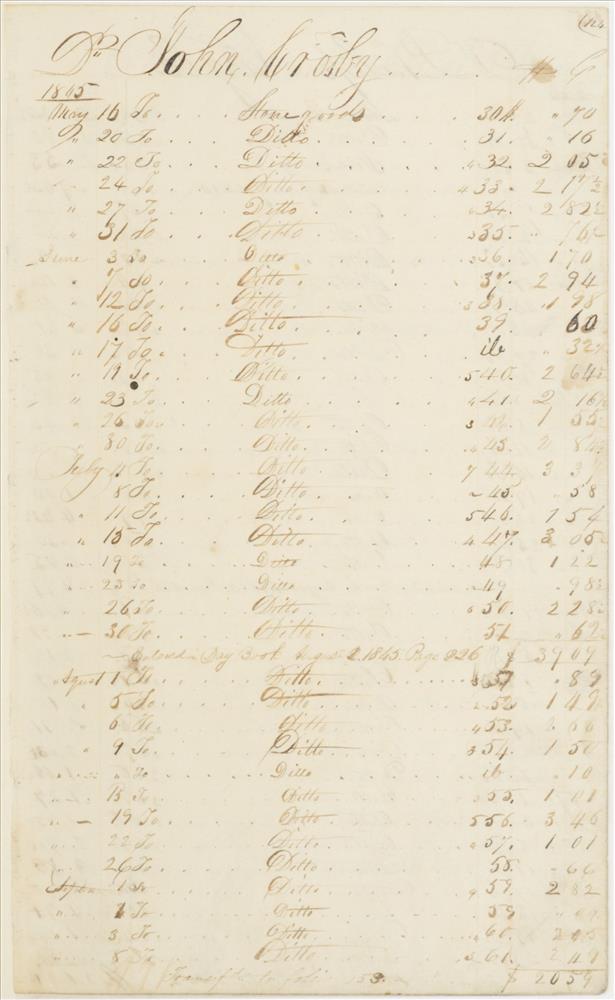 Dr John Crosby . . . . $ C
1845
May 16 To . . . Stone goods . . . 30 . " 70
Do " 20 To . . . Ditto . . . 31 . " 16
" 22 To . . . Ditto . . . 32 . 2 05
24 To . . . Ditto . . . 33 . 2 17½
" 27 To . . . Ditto . . . 34 . 2 82
" 31 To . . . Ditto . . . 35 . " 76
June 3 To . . . Ditto . . . 36 . 1 70
" 7 To . . . Ditto . . . 37 . 2 94
" 12 To . . . Ditto . . . 38 . 1 98
" 16 To . . . Ditto . . . 39 . 60
" 17 To . . . Ditto . . . ib " 32
" 19 To . . . Ditto . . . 40 . 2 64
" 23 To . . . Ditto . . . 41 . 2 16
" 26 To . . . Ditto . . . 42 . 1 55
" 30 To . . . Ditto . . . 43 . 2 84
July 4 To . . . Ditto . . . 44 . 3 37
8 To . . . Ditto . . . 45 . " 58
" 11 To . . . Ditto . . . 46 . 1 54
" 15 To . . . Ditto . . . 47 . 3 05
" 19 To . . . Ditto . . . 48 . 1 22
" 23 To . . . Ditto . . . 49 . 98
" 26 To . . . Ditto . . . 50 . 2 28
" 30 To . . . Ditto . . . 51 " 62
in Day Book August 2 1845. Page 226 $ 39 09
August 1 To . . . Ditto . . . " 89
" 5 To . . . Ditto . . . 52 1 49
" 6 To . . . Ditto . . . 53 . 66
" 9 To . . . Ditto . . . 54 . 1 50
" " To . . . Ditto . . . ib . " 10
" 13 To . . . Ditto . . . 55 . 1 01
" 19 To . . . Ditto . . . 56 . 3 46
" 22 To . . . Ditto . . . 57 . 1 01
" 26 To . . . Ditto . . . 58 . " 66
1 To . . . Ditto . . . 59 . 2 82
" To . . . Ditto . . . 59 "
" 3 To . . . Ditto . . . 60 . 2
" 8 To . . . Ditto . . . 61 . 2 49
to folio 153 . $ 20 59